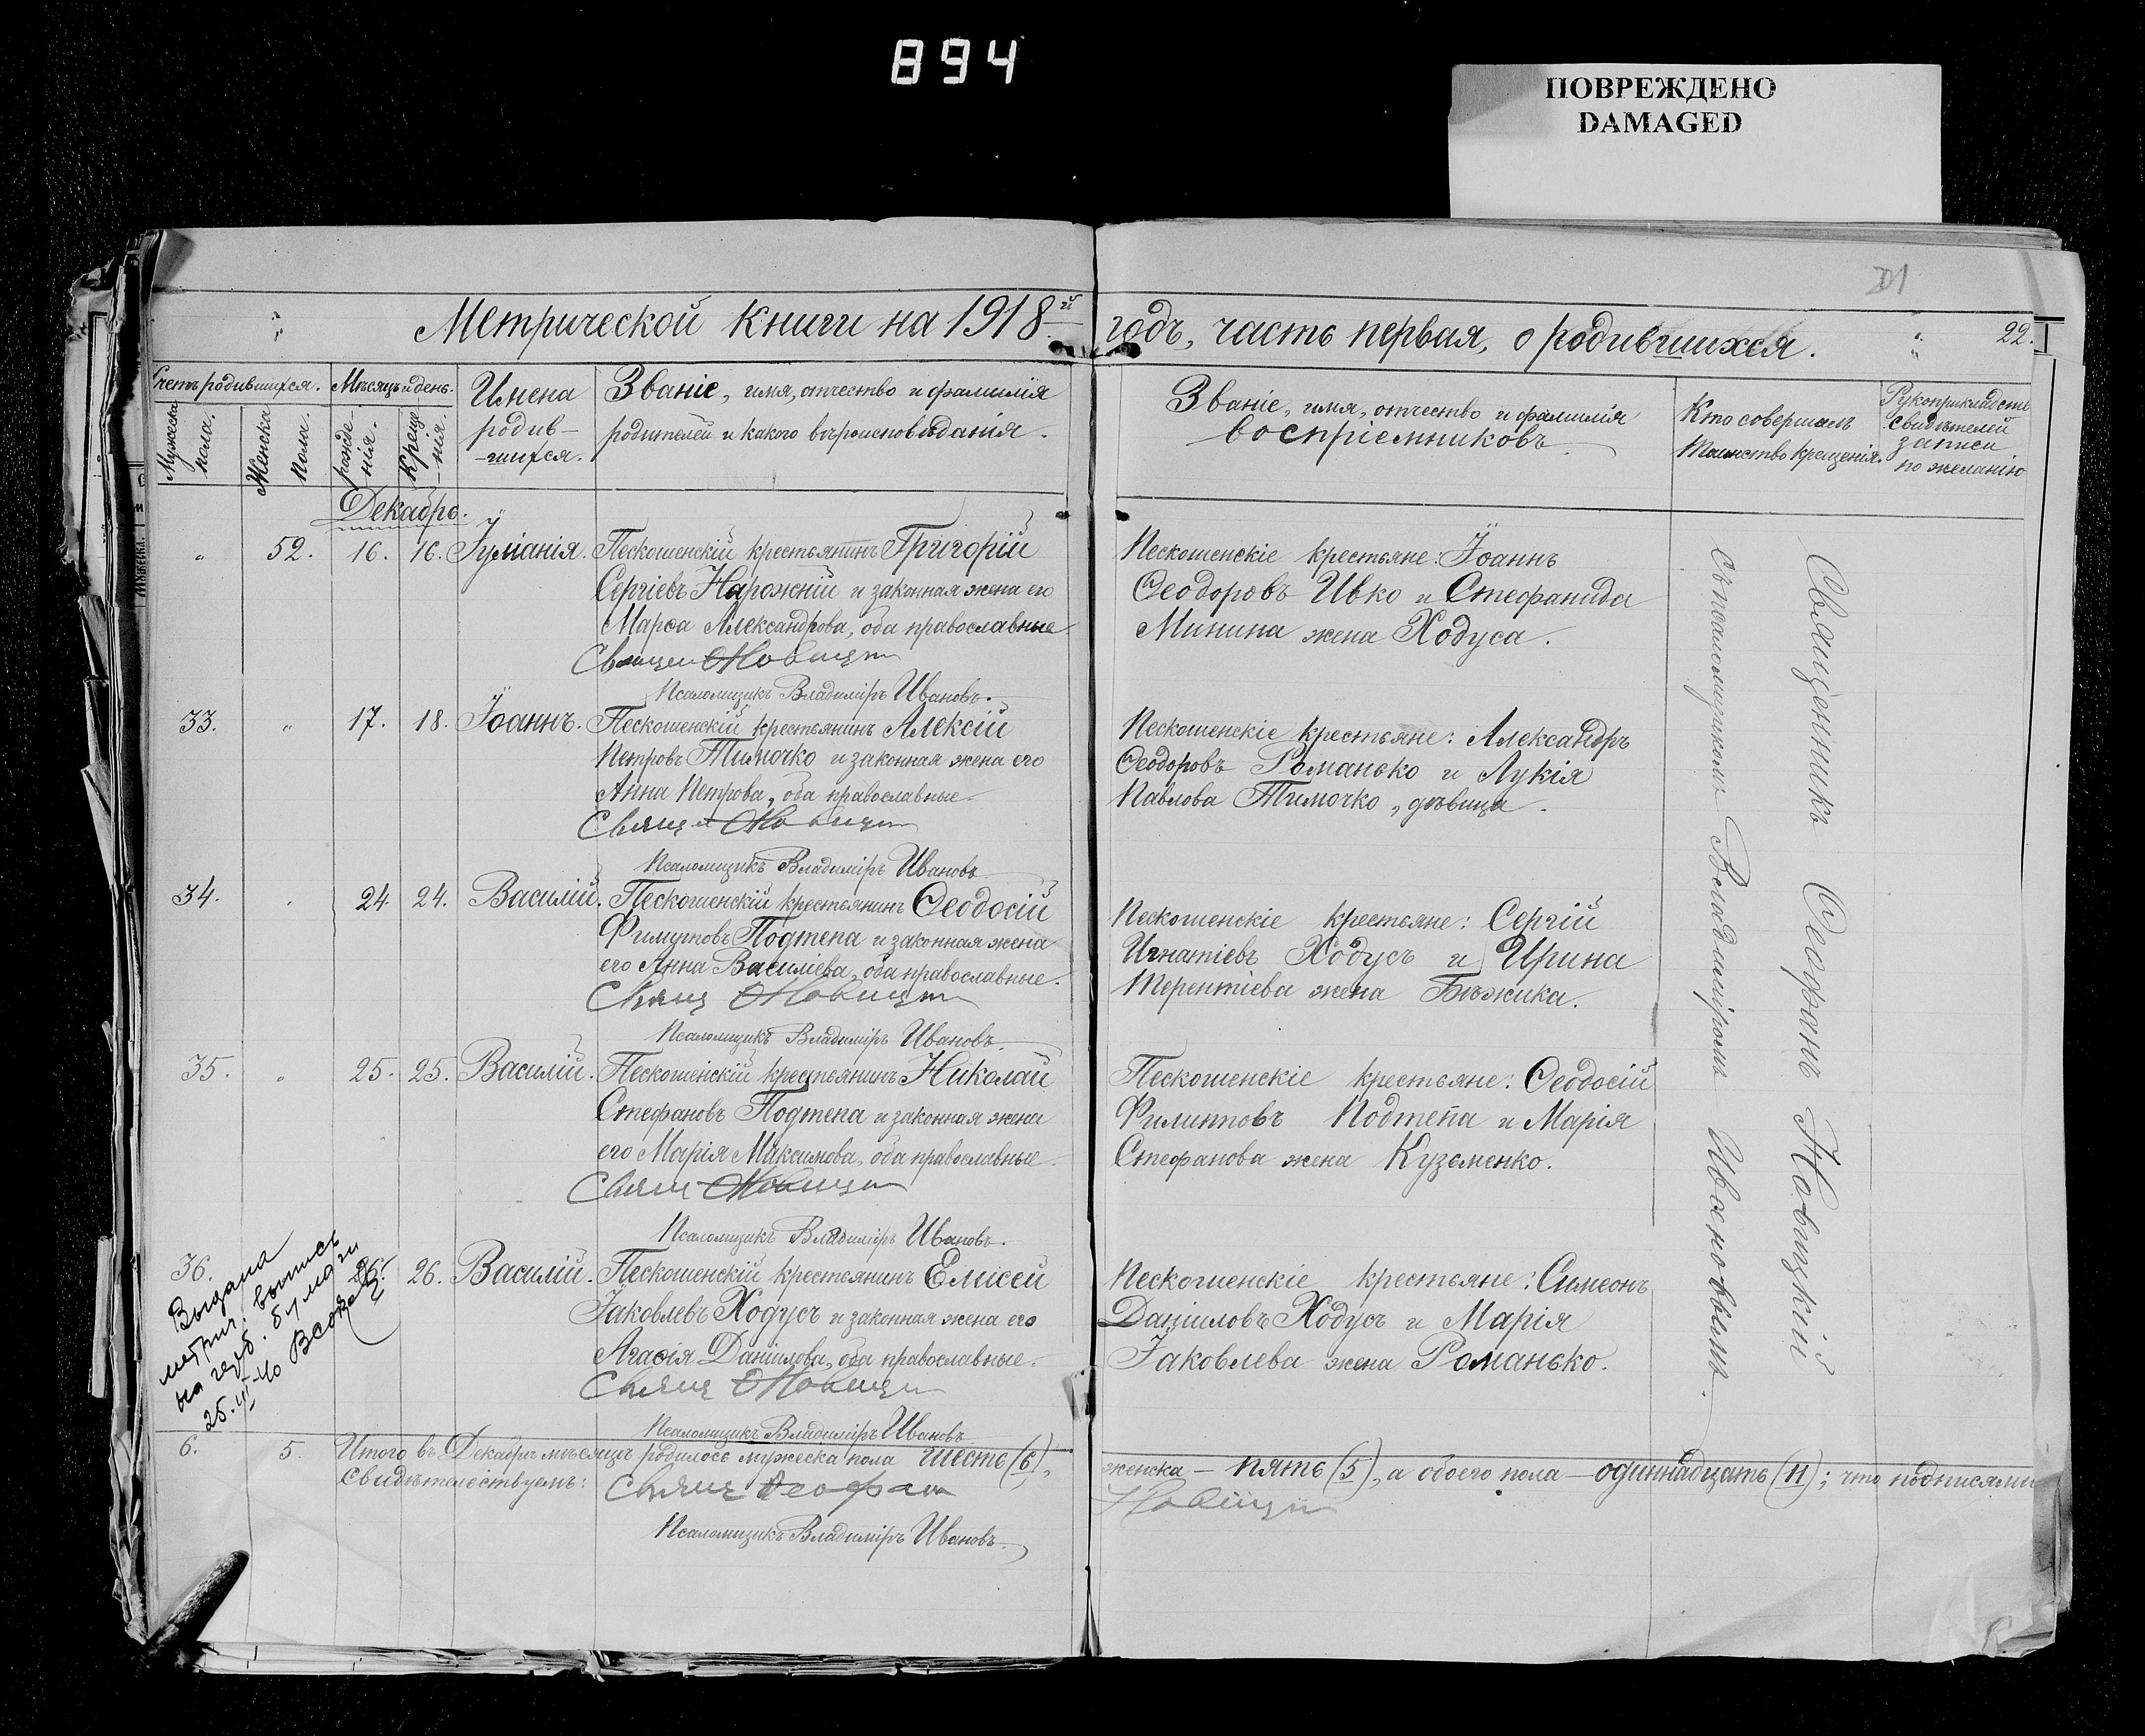 894
ПОВРЕЖДЕНО
DAMAGED
Метрической книги на 1918й годъ, часть первая, о родившихся.
22.
Счетъ родившихся.
Мужеска пола.
Женска пола.
Мѣсяцъ и день.
рожде-
нія.
Креще-
-нія.
Имена
родив-
-шихся.
Званіе, имя, отчество и фамилія
родителей и какого вѣроисповѣданія.
Званіе, имя, отчество и фамилія
воспріемниковъ.
Кто совершалъ
таинство крещенія.
Рукоприкладство
свидѣтелей
записи
по желанію
Декабрь.
52. 16. 16. Іуліанія. Пескошенскій крестьянинъ Григорій
Сергіевъ Нарожній и законная жена его
Марѳа Александрова, оба православные
Священ Новицкі
Псаломщикъ Владиміръ Ивановъ.
Пескошенскіе крестьяне: Іоаннъ
Ѳеодоровъ Ивко и Стефанида
Минина жена Ходуса.
33. " 17. 18. Іоаннъ. Пескошенскій крестьянинъ Алексій
Петровъ Тимочко и законная жена его
Анна Петрова, оба православные
Свящ Новицкі
Псаломщикъ Владиміръ Ивановъ
Пескошенскіе крестьяне: Александръ
Ѳеодоровъ Романько и Лукія
Павлова Тимочко, дѣвица.
34. 24. 24. Василій. Пескошенскій крестьянинъ Ѳеодосій
Филиповъ Подтепа и законная жена
его Анна Василіева, оба православные.
Свящ Новицкі
Псаломщикъ Владиміръ Ивановъ
Пескошенскіе крестьяне: Сергій
Игнатіевъ Ходусъ и Ирина
Терентіева жена Бѣжика.
35. " 25. 25. Василій. Пескошенскій крестьянинъ Николай
Стефановъ Подтепа и законная жена
его Марія Максимова, оба православные
Свящ Новицкі
Псаломщикъ Владиміръ Ивановъ.
Пескошенскіе крестьяне: Ѳеодосій
Филипповъ Подтепа и Марія
Стефанова жена Кузьменко.
36. 26. 26. Василій. Пескошенскій крестьянинъ Елисей
Іаковлевъ Ходусъ и законная жена его
Агаѳія Даніилова, оба православные.
Свящ Новицкі
Псаломщикъ Владиміръ Ивановъ
Пескошенскіе крестьяне: Симеонъ
Даніиловъ Ходусъ и Марія
Іаковлева жена Романько.
Выдана
метрич. выпись
на герб. бумаги
25.
Священникъ Ѳеофанъ Новицкій
съ псаломщикомъ Владиміромъ Ивановымъ.
6. 5. Итого въ Декабрѣ мѣсяцѣ родилось мужеска пола шесть (6), женска — пять (5), а обоего пола — одиннадцать (11); что подписями
свидѣтельствуемъ: Свящ Ѳеофан Новицкі
Псаломщикъ Владиміръ Ивановъ.